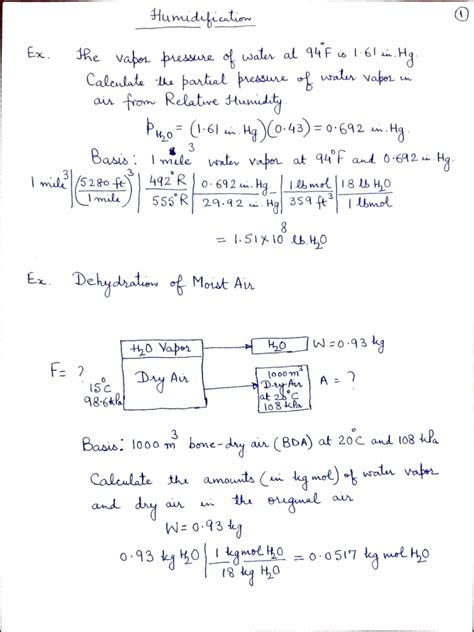 Humidification
①
Ex. The vapor pressure of water at 94°F is 1.61 in. Hg.
Calculate the partial pressure of water vapor in
air from Relative Humidity.
PH₂O = (1.61 in. Hg)(0.43) = 0.692 in. Hg.
Basis: 1 mile³ water vapor at 94°F and 0.692 in. Hg
1 mile³ | (5280 ft / 1 mile)³ | 492°R / 555°R | 0.692 in. Hg / 29.92 in. Hg | 1 lbmol / 359 ft³ | 18 lb H₂O / 1 lbmol
= 1.51×10⁸ lb. H₂O
Ex. Dehydration of Moist Air
H₂O Vapor
H₂O
W = 0.93 kg
F = ?
15°C
98.6 kPa
Dry Air
1000 m³
Dry Air
at 20°C
108 kPa
A = ?
Basis: 1000 m³ bone-dry air (BDA) at 20°C and 108 kPa
Calculate the amounts (in kg mol) of water vapor
and dry air in the original air
W = 0.93 kg
0.93 kg H₂O | 1 kg mol H₂O / 18 kg H₂O = 0.0517 kg mol H₂O